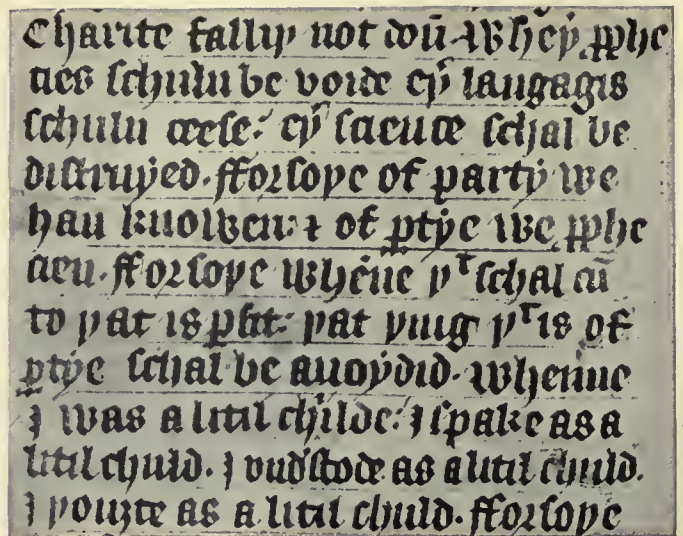 Charite falliþ not doū· Wheþ̛ ꝓphe
cies schuln be voide eþ̛ langagis
schuln ceese: eþ̛ science schal be
distruyed· fforsoþe of party we
han knowen: ⁊ of ꝑtye we ꝓphe
cien· fforsoþe whēne þᵗ schal cū
to þat is ꝑfit: þat þing þᵗ is of
ꝑtye schal be auoydid· whenne
I was a litil childe: I spake as a
litil chijld· I vnd᷒stode as a litil chijld·
I þouȝte as a litil chijld· fforsoþe